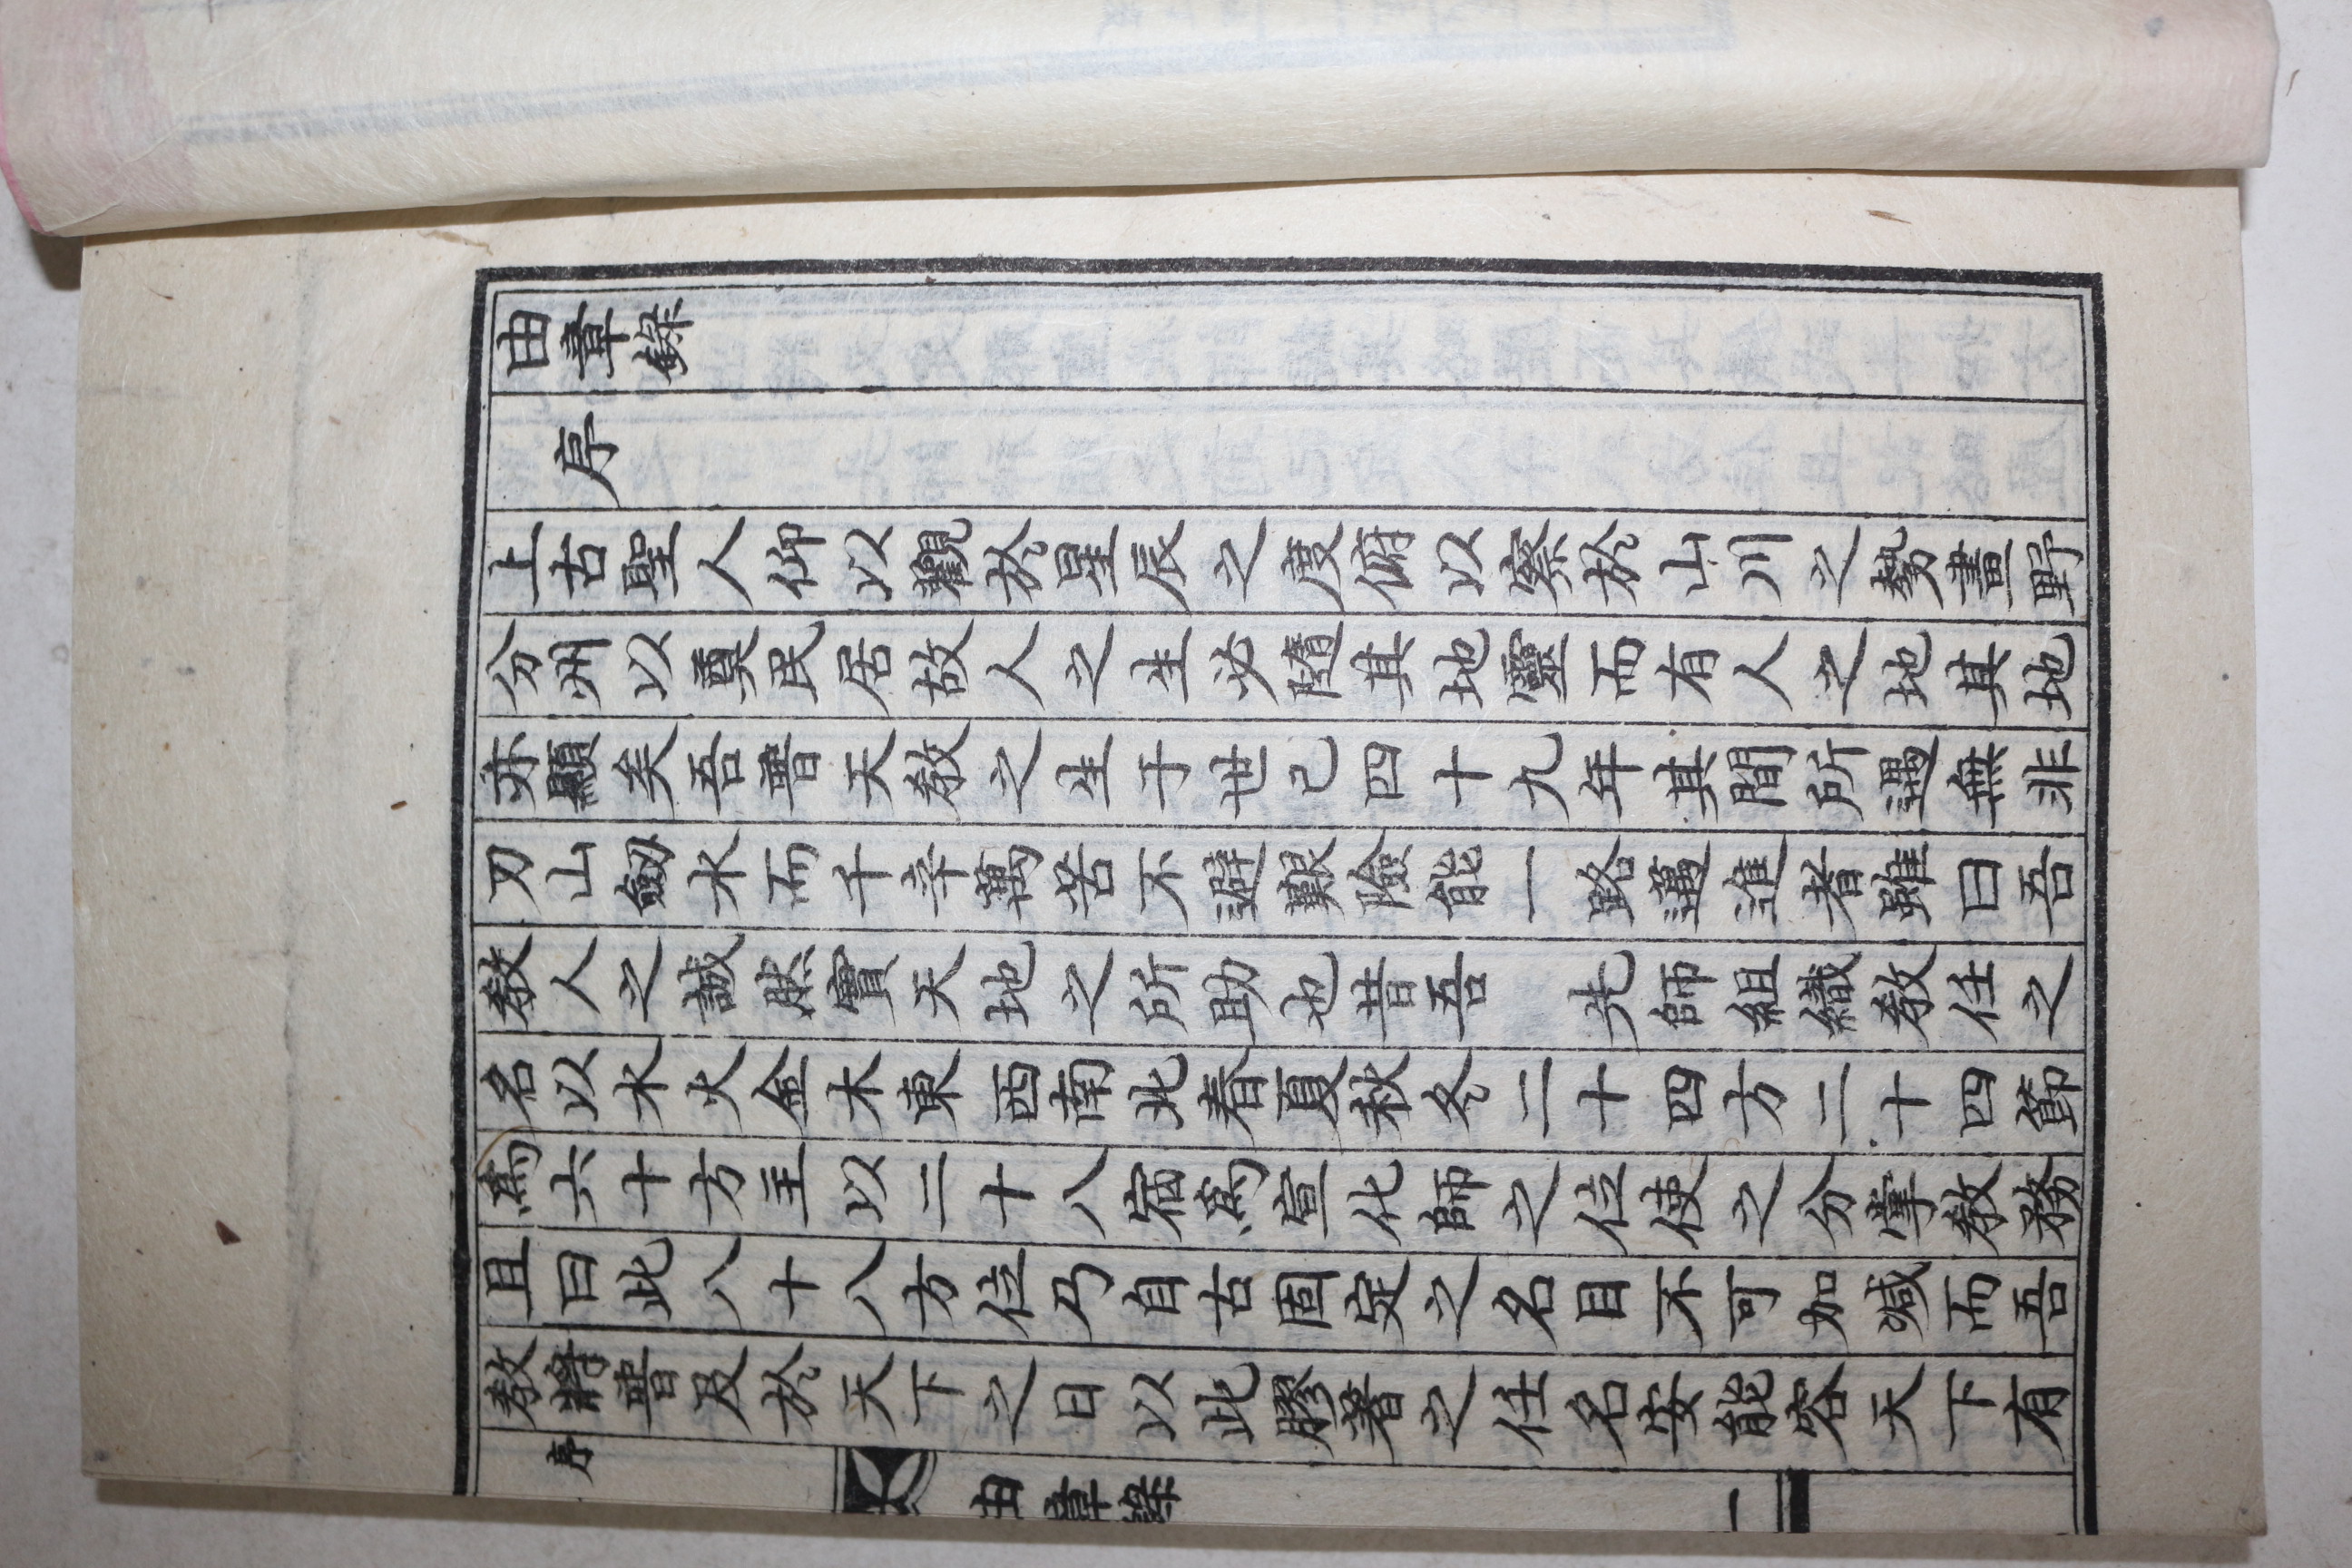 由章錄
序
上古聖人仰以觀於星辰之度俯以察於山川之勢畫野
分州以奠民居故人之生必隨其地靈而有人之地其地
亦顯矣吾普天教之生于世已四十九年其間所遇無非
刀山劒水而千辛萬苦不避艱險能一路邁進者雖曰吾
教人之誠然實天地之所助也昔吾　先師組織教任之
名以水火金木東西南北春夏秋冬二十四方二十四節
爲六十方主以二十八宿爲宣化師之位使之分掌教務
且曰此八十八方位乃自古固定之名目不可加减而吾
教將普及於天下之日以此膠著之任名安能容天下有
序
由章錄
一